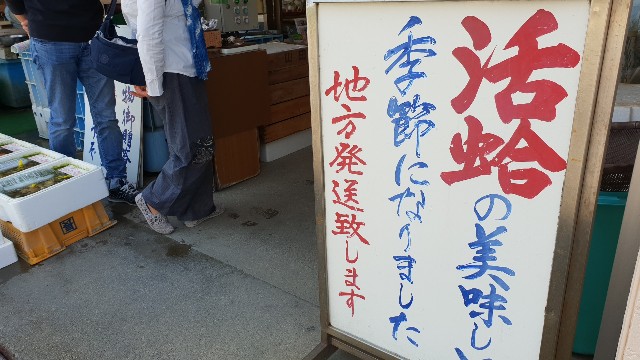 活蛤の美味しい
季節になりました
地方発送致します